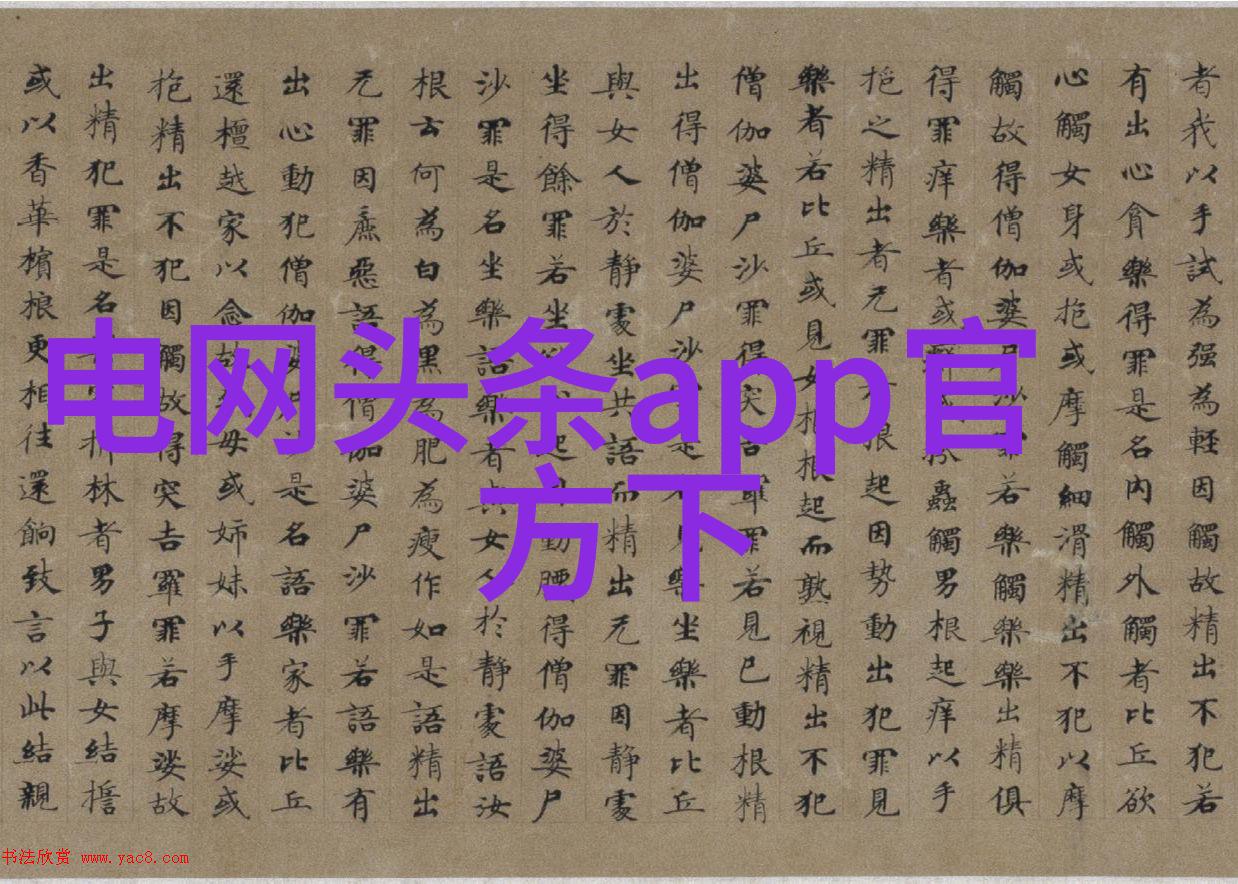 者我以手試為强為輕因觸故精出不犯若
有出心貪樂得罪是名内觸外觸者比丘欲
心觸女身或抱或摩觸細滑精出不犯以摩
觸故得僧伽婆尸沙罪若樂觸樂樂出精俱
得罪痒樂者或蟲觸男根起痒以手
抱之精出者无罪根起因勢動出犯罪見
樂者若比丘或見女根根起而熟視精出不犯
僧伽婆尸沙罪得突吉羅罪若見已動根精
出得僧伽婆尸沙是見樂坐樂者比丘
與女人於静處坐共語而精出无罪因静處
坐得餘罪若坐起動腰得僧伽婆尸
沙罪是名坐樂語樂者女人於静處語汝
根云何為白為黑為肥為瘦作如是語精出
无罪因麁惡語得僧伽婆尸沙罪若語樂有
出心動犯僧伽婆是名語樂家者比丘
還檀越家以念故母或姉妹以手摩娑或
抱精出不犯因觸故得突吉羅罪若摩娑故
出精犯罪是名折林者男子與女結誓
或以香華檳榔更相往還餉致言以此結親
电网头条app官
方下
书法欣赏 www.yac8.com